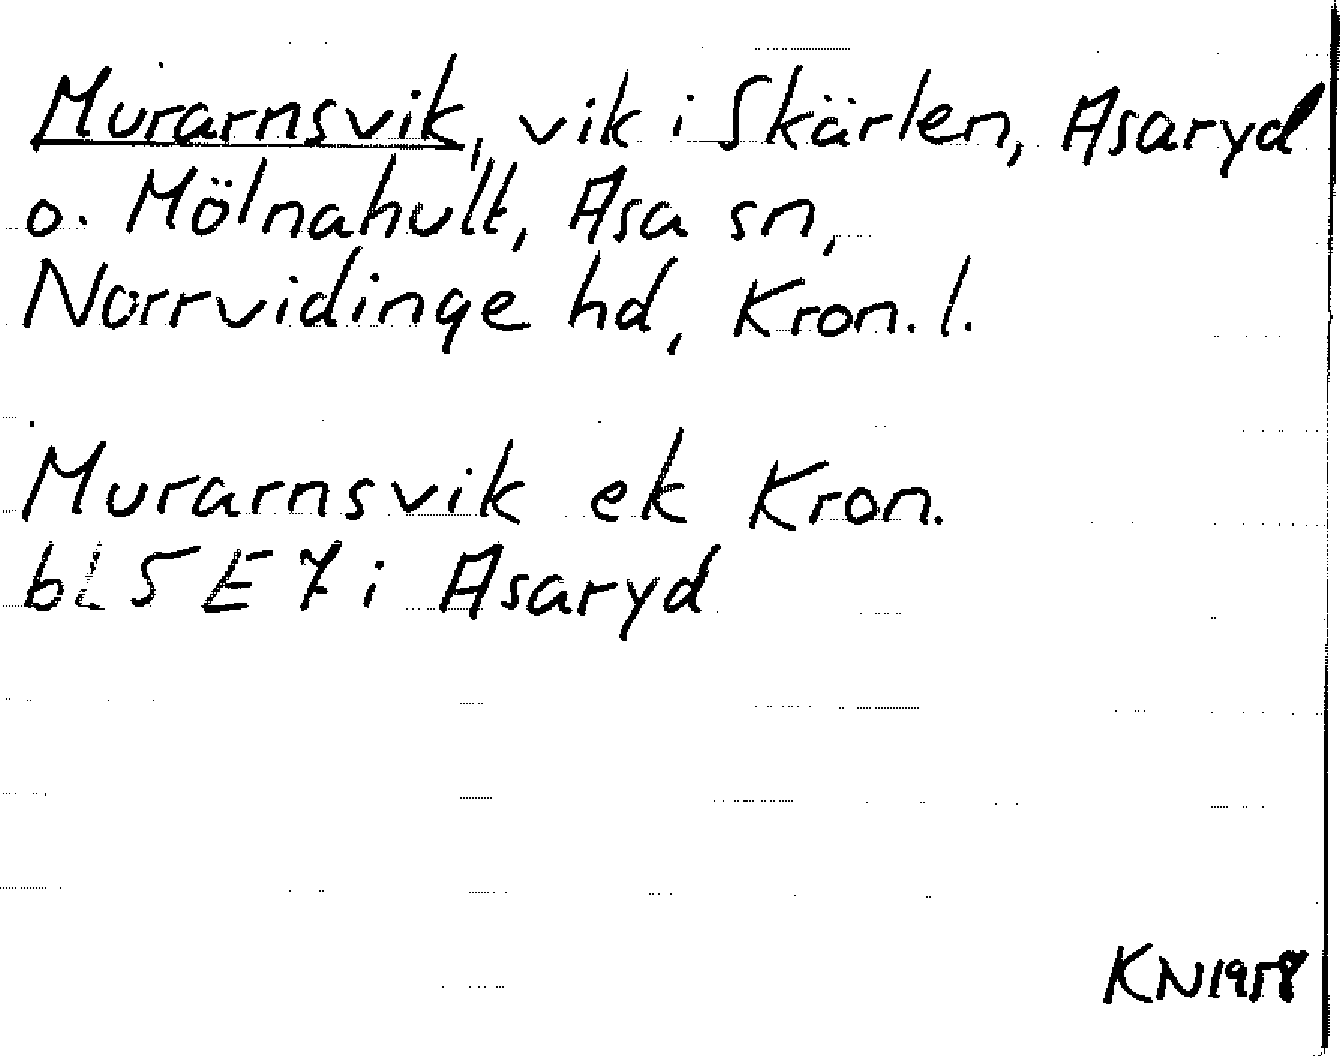 Murarnsvik, vik i Skärlen, Asaryd
o. Mölnahult, Asa sn,
Norrvidinge hd, Kron. l.
Murarnsvik ek Kron.
bl 5 E 7 i Asaryd
KN 1958